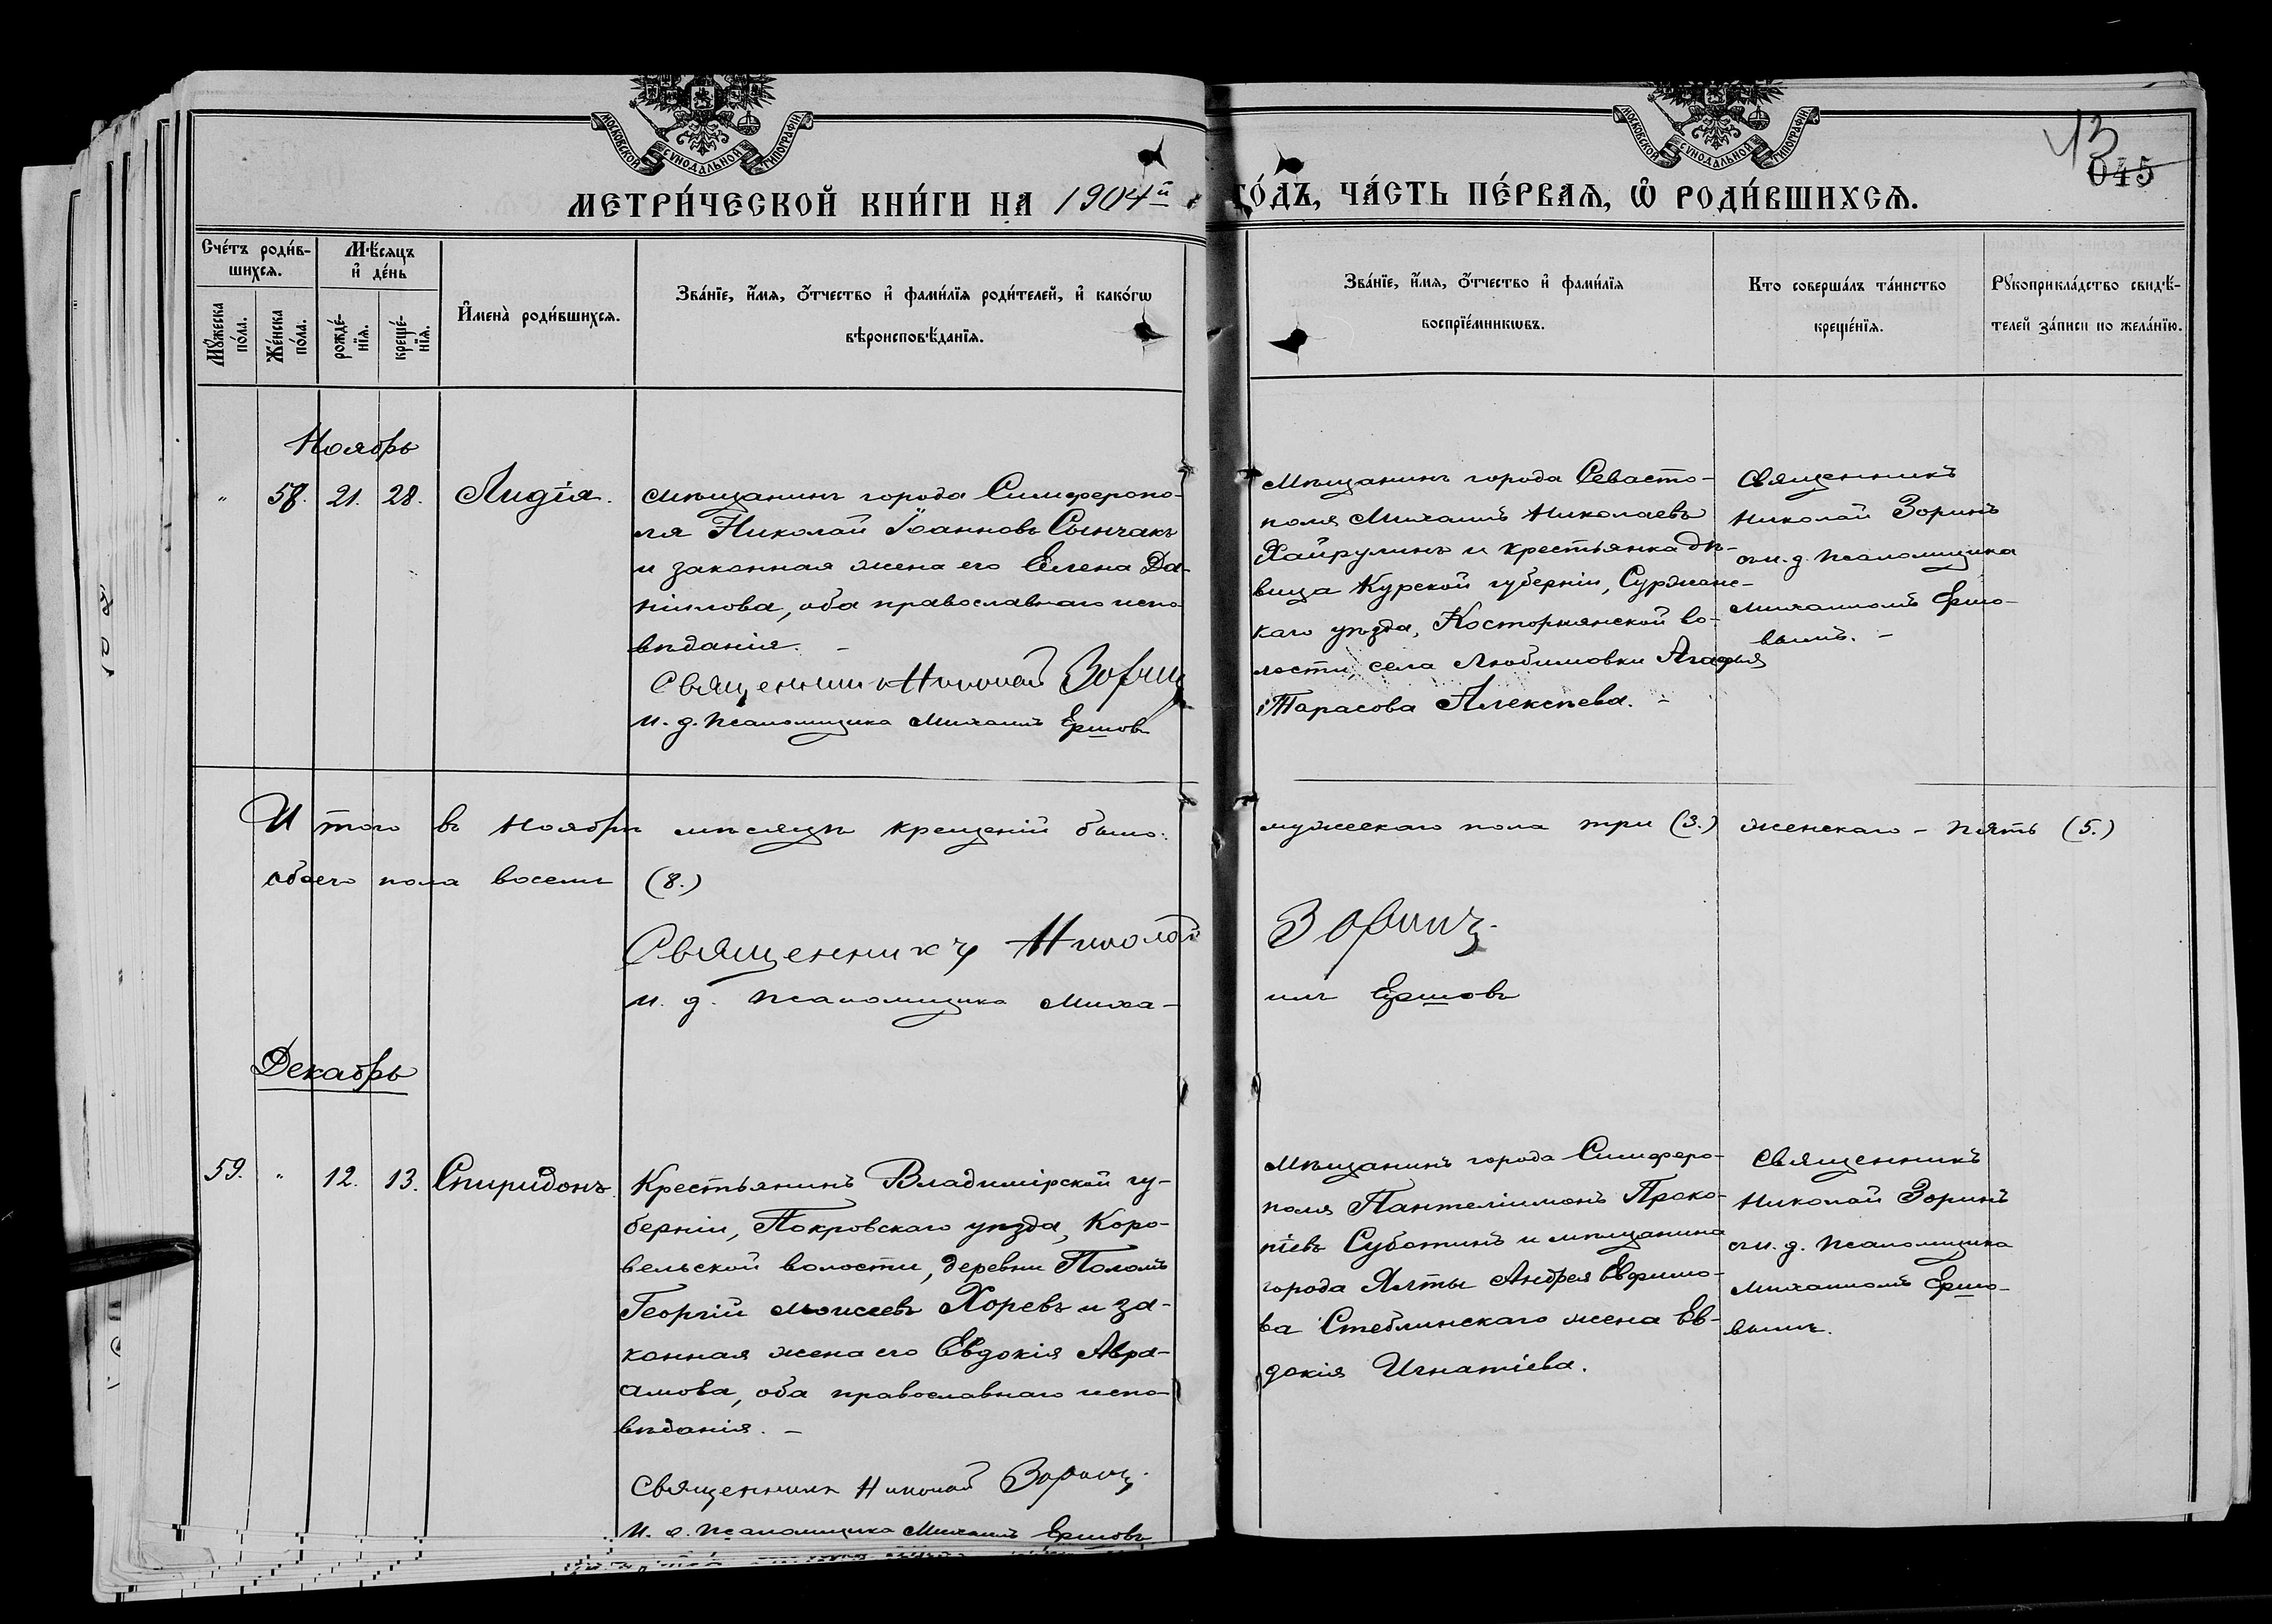 МОСКОВСКОЙ СѴНОДАЛЬНОЙ ТИПОГРАФІИ
МОСКОВСКОЙ СѴНОДАЛЬНОЙ ТИПОГРАФІИ
43
045
МЕТРИ́ЧЕСКОЙ КНИ́ГИ НА 1904й ГО́ДЪ, ЧА́СТЬ ПЕ́РВАЯ, Ѡ РОДИ́ВШИХСЯ.
Сче́тъ роди́в-
шихся.
Мꙋ́жеска по́ла.
Же́нска по́ла.
Мѣ́сяцъ
и҆ де́нь
рожде́-
нїя.
креще́-
нїя.
И҆мена̀ роди́вшихся.
Зва́нїе, и҆́мя, ѻ҆́тчество и҆ фами́лїя роди́телей, и҆ како́гѡ
вѣроисповѣ́данїя.
Зва́нїе, и҆́мя, ѻ҆́тчество и҆ фами́лїя
воспрїе́мникѡвъ.
Кто соверша́лъ та́инство
креще́нїя.
Рꙋкоприкла́дство свидѣ́-
телей за́писи по жела́нїю.
Ноябрь
" 58. 21. 28. Лидія.
Мѣщанинъ города Симферопо-
ля Николай Іоанновъ Сынчакъ
и законная жена его Елена Да-
ніилова, оба православнаго испо-
вѣданія. –
Священникъ Николай Зоринъ
И. д. псаломщика Михаилъ Ершовъ
Мѣщанинъ города Севасто-
поля Михаилъ Николаевъ
Хайрулинъ и крестьянка дѣ-
вица Курской губерніи, Суржанс-
каго уѣзда, Косторнянской во-
лости, села Любимовки Агафья
Тарасова Алексѣева. –
Священникъ
Николай Зоринъ
съ и. д. псаломщика
Михаиломъ Ершо-
вымъ. –
И того въ Ноябрѣ мѣсяцѣ крещеній было: мужескаго пола три (3.) женскаго – пять (5.)
обоего пола восемь (8.)
Священникъ Николай Зоринъ.
И. д. псаломщика Миха- илъ Ершовъ
Декабрь
59. " 12. 13. Спиридонъ.
Крестьянинъ Владимірской гу-
берніи, Покровскаго уѣзда, Коро-
вельской волости, деревни Поломъ
Георгій Моисеевъ Хоревъ и за-
конная жена его Евдокія Авра-
амова, оба православнаго испо-
вѣданія. –
Священникъ Николай Зоринъ.
И. д. псаломщика Михаилъ Ершовъ
Мѣщанинъ города Симферо-
поля Пантелимонъ Проко-
піевъ Суботинъ и мѣщанина
города Ялты Андрея Евфимо-
ва Стеблинскаго жена Ев-
докія Игнатіева.
Священникъ
Николай Зоринъ
съ и. д. псаломщика
Михаиломъ Ершо-
вымъ.